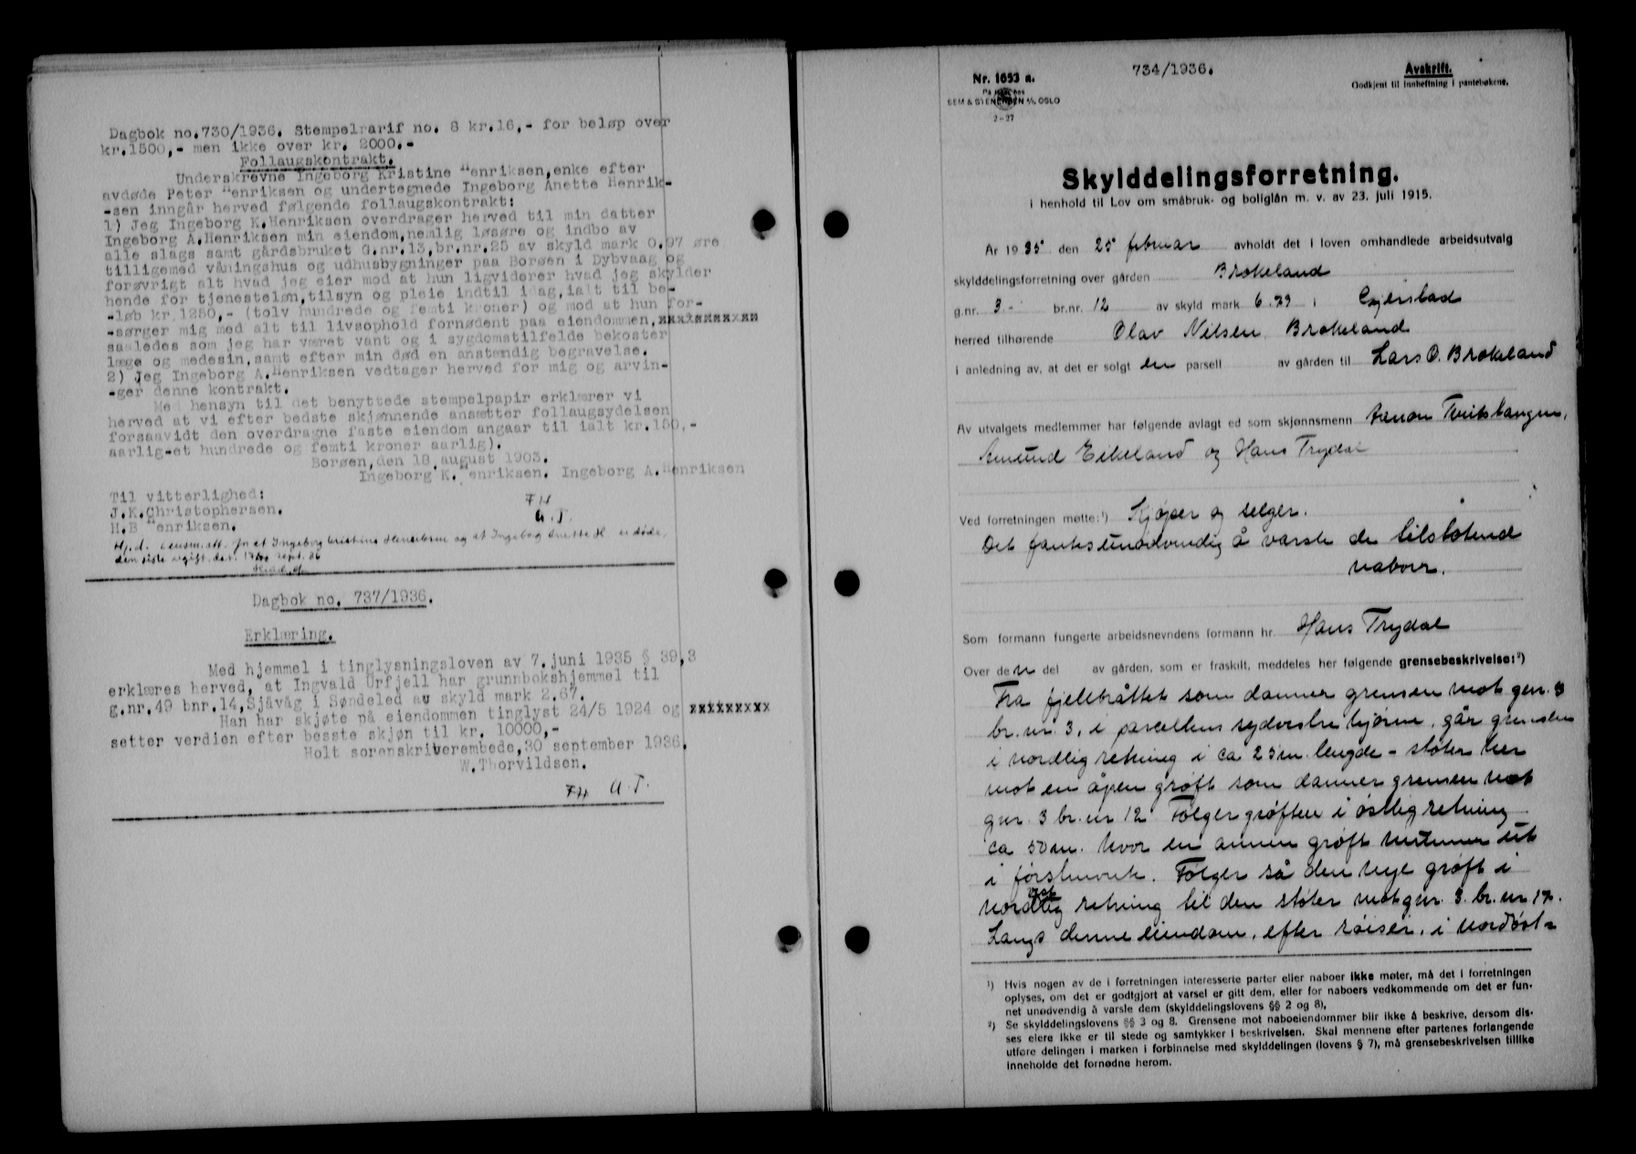 Dagbok no.730/1936. Stempelrarif no. 8 kr.16,- for beløp over
kr.1500,- men ikke over kr. 2000.-
Follaugskontrakt.
Underskrevne Ingeborg Kristine Henriksen,enke efter
avdøde Peter Henriksen og undertegnede Ingeborg Anette Henrik-
-sen inngår herved følgende follaugskontrakt:
1) Jeg Ingeborg K.Henriksen overdrager herved til min datter
Ingeborg A.Henriksen min eiendom,nemlig løsøre og indbo av
alle slags samt gårdsbruket G.nr.13,br.nr.25 av skyld mark 0.97 øre
tilligemed våningshus og udhusbygninger paa Borøen i Dybvaag og
forøvrigt alt hvad jeg eier mod at hun ligviderer hvad jeg skylder
hende for tjenesteløn,tilsyn og pleie indtil idag,ialt til be-
-løb kr.1250,- (tolv hundrede og femti kroner) og mod at hun for-
-sørger mig med alt til livsophold fornødent paa eiendommen,xxxxxxxxxx
saaledes som jeg har været vant og i sygdomstilfelde bekoster
læge og medesin,samt efter min død en anstændig begravelse.
2) Jeg Ingeborg A.Henriksen vedtager herved for mig og arvin-
-ger denne kontrakt.
Med hensyn til det benyttede stempelpapir erklærer vi
herved at vi efter bedste skjønnende ansætter follaugsydelsen
forsaavidt den overdragne faste eiendom angaar til ialt kr.150,-
aarlig-et hundrede og femti kroner aarlig).
Borøen,den 18 august 1903.
Ingeborg K. Henriksen. Ingeborg A.Henriksen
Til vitterlighed:
J.K.Christophersen.
H.B Henriksen.
FH
a.T.
Hj.d. att. for at Ingeborg Kristine Henriksen og at Ingeborg Anette H er døde,
den siste ugift. den sept. 36
Dagbok no. 737/1936.
Erklæring.
Med hjemmel i tinglysningsloven av 7.juni 1935 § 39,3
erklæres herved, at Ingvald Urfjell har grunnbokshjemmel til
g.nr.49 bnr.14,Sjåvåg i Søndeled av skyld mark 2.67.
Han har skjøte på eiendommen tinglyst 24/5 1924 og xxxxxxxxx
setter verdien efter besste skjøn til kr. 10000,-
Holt sorenskriverembede,30 september 1936.
W.Thorvildsen.
FH a.T.
Nr. 1653 a.
På lager hos
SEM & STENERSEN A/S OSLO
2-27
734/1936.
Avskrift.
Godkjent til innheftning i pantebøkene.
Skylddelingsforretning.
i henhold til Lov om småbruk- og boliglån m. v. av 23. juli 1915.
År 1935 den 25 februar avholdt det i loven omhandlede arbeidsutvalg
skylddelingsforretning over gården Brokeland
g.nr. 3 - br.nr. 12 av skyld mark 6.29 i Gjerstad
herred tilhørende Olav Nilsen Brokeland
i anledning av, at det er solgt en parsell av gården til Lars O. Brokeland
Av utvalgets medlemmer har følgende avlagt ed som skjønnsmenn
Amund Eikeland og Hans Trydal
Ved forretningen møtte:¹) Kjøper og selger.
Det fantes unødvendig å varsle de tilstøtende
naboer.
Som formann fungerte arbeidsnevndens formann hr. Hans Trydal
Over den del av gården, som er fraskilt, meddeles her følgende grensebeskrivelse:²)
Fra fjellkåttet som danner grensen mot gnr. 3
br. nr. 3, i parcellens syderstre hjørne, går grensen
i nordlig retning i ca 25 m. lengde - støter her
mot en åpen grøft som danner grensen mot
gnr. 3 br. nr 12 Følger grøften i østlig retning
ca 50 m. hvor en annen grøft munner ut
i førstnevnte. Følger så den nye grøft i
nordlig retning til den støter mot gnr. 3. br. nr 17.
Langs denne eiendom, efter røiser, i nordøst-
¹) Hvis nogen av de i forretningen interesserte parter eller naboer ikke møter, må det i forretningen
oplyses, om det er godtgjort at varsel er gitt dem, eller for naboers vedkommende om det er fun-
net unødvendig å varsle dem (skylddelingslovens §§ 2 og 8).
²) Se skylddelingslovens §§ 3 og 8. Grensene mot naboeiendommer blir ikke å beskrive, dersom dis-
ses eiere ikke er til stede og samtykker i beskrivelsen. Skal mennene efter partenes forlangende
utføre delingen i marken i forbinnelse med skylddelingen (lovens § 7), må grensebeskrivelsen tillike
inneholde det fornødne herom.